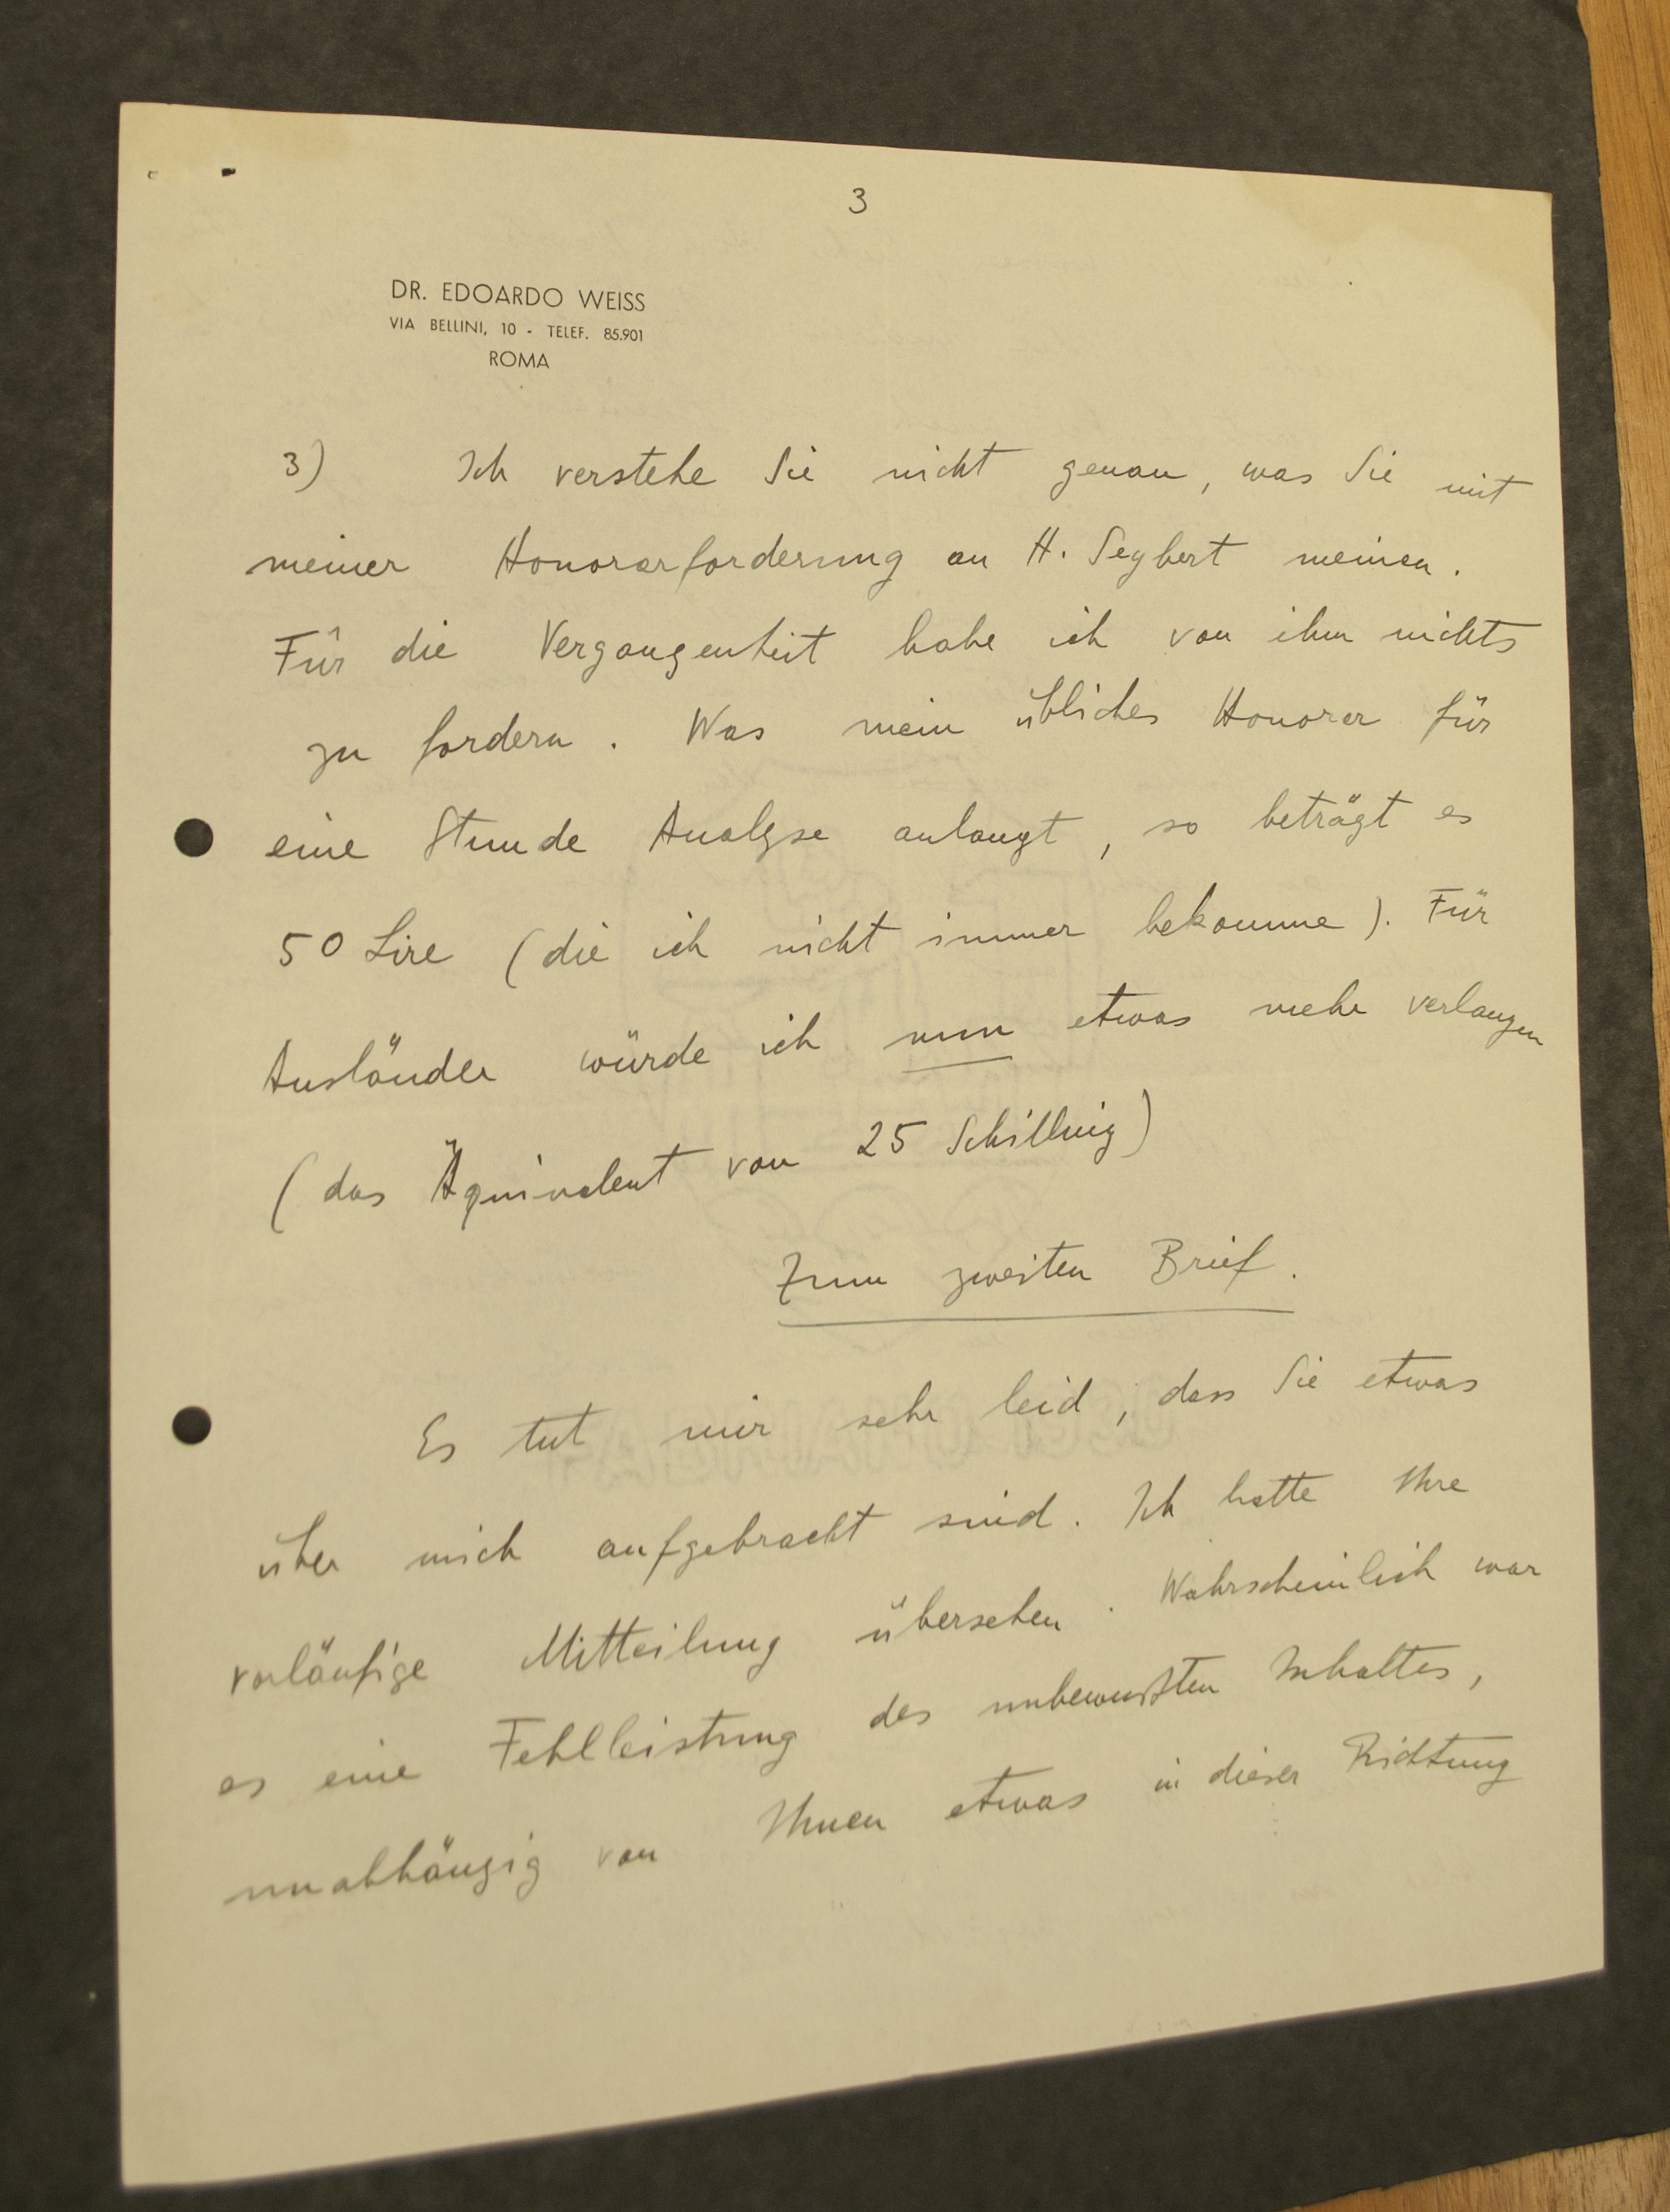 3
DR. EDOARDO WEISS
VIA BELLINI, 10 - TELEF. 85.901
ROMA
3) Ich verstehe Sie nicht genau, was Sie mit
meiner Honorarforderung an H. Seybert meinen.
Für die Vergangenheit habe ich von ihm nichts
zu fordern. Was mein übliches Honorar für
eine Stunde Analyse anlangt, so beträgt es
50 Lire (die ich nicht immer bekomme). Für
Ausländer würde ich nun etwas mehr verlangen
(das Äquivalent von 25 Schilling)
Zum zweiten Brief.
Es tut mir sehr leid, dass Sie etwas
über mich aufgebracht sind. Ich hatte Ihre
vorläufige Mitteilung übersehen. Wahrscheinlich war
es eine Fehlleistung des unbewußten Inhaltes,
unabhängig von Ihnen etwas in dieser Richtung